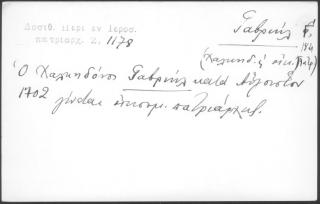 Δοσιθ. Περί εν Ιεροσ.
πατριαρχ. Σ. 1178
Γαβριήλ
(Χαλκηδ.
Ὁ Χαλκηδόνος Γαβριήλ κατά Αὔγουστον
1702 γίνεται οἰκουμ. πατριάρχης.